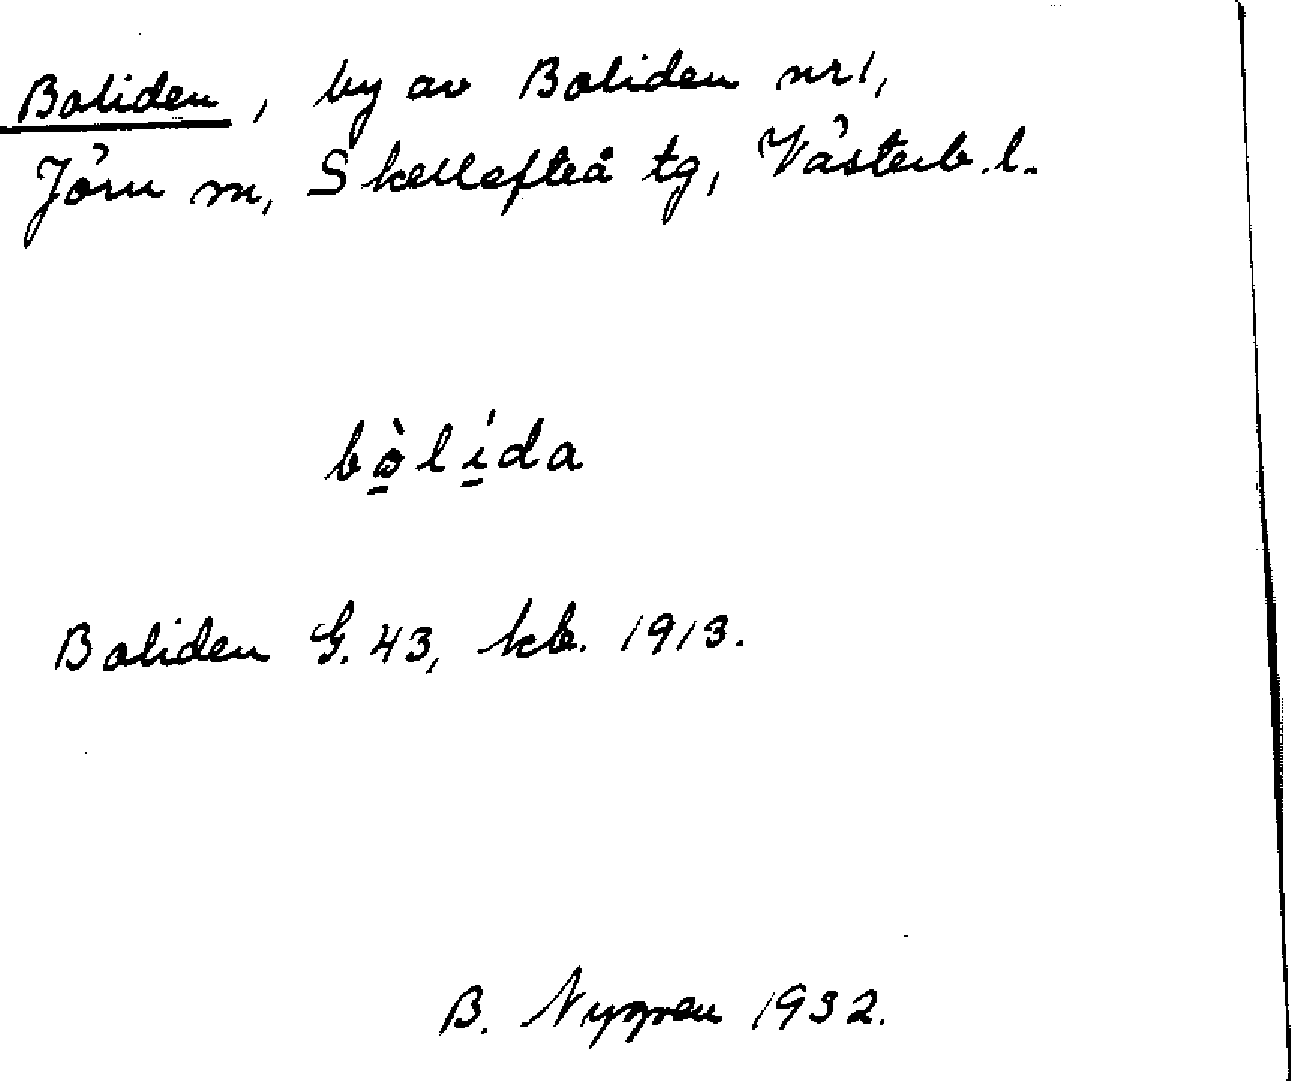 Boliden, by av Boliden nr 1,
Jörn m, Skellefteå tg, Västerb. l.
bò̱lí̱da
Boliden G. 43, kb. 1913.
B. Nygren 1932.